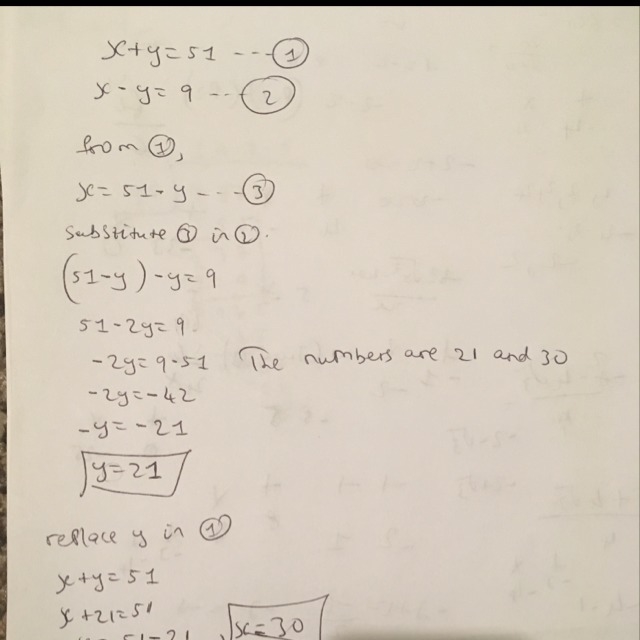 x+y=51 ---①
x-y=9 ---②
from ①,
x=51-y ---③
substitute ① in ①.
(51-y)-y=9
51-2y=9
-2y=9-51 The numbers are 21 and 30
-2y=-42
-y=-21
y=21
replace y in ①
x+y=51
x+21=51
x=30